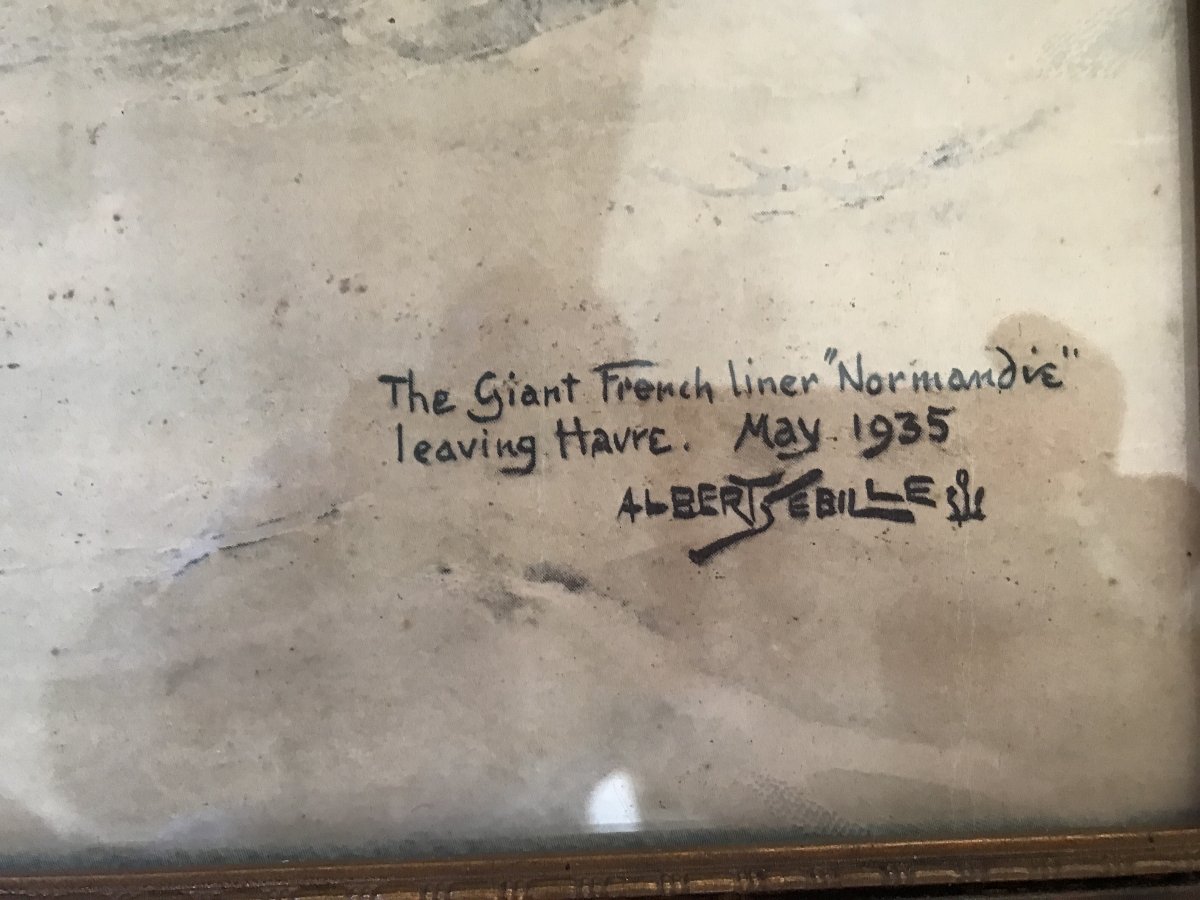 The Giant French liner "Normandie"
leaving Havre. May 1935
ALBERT SEBILLE